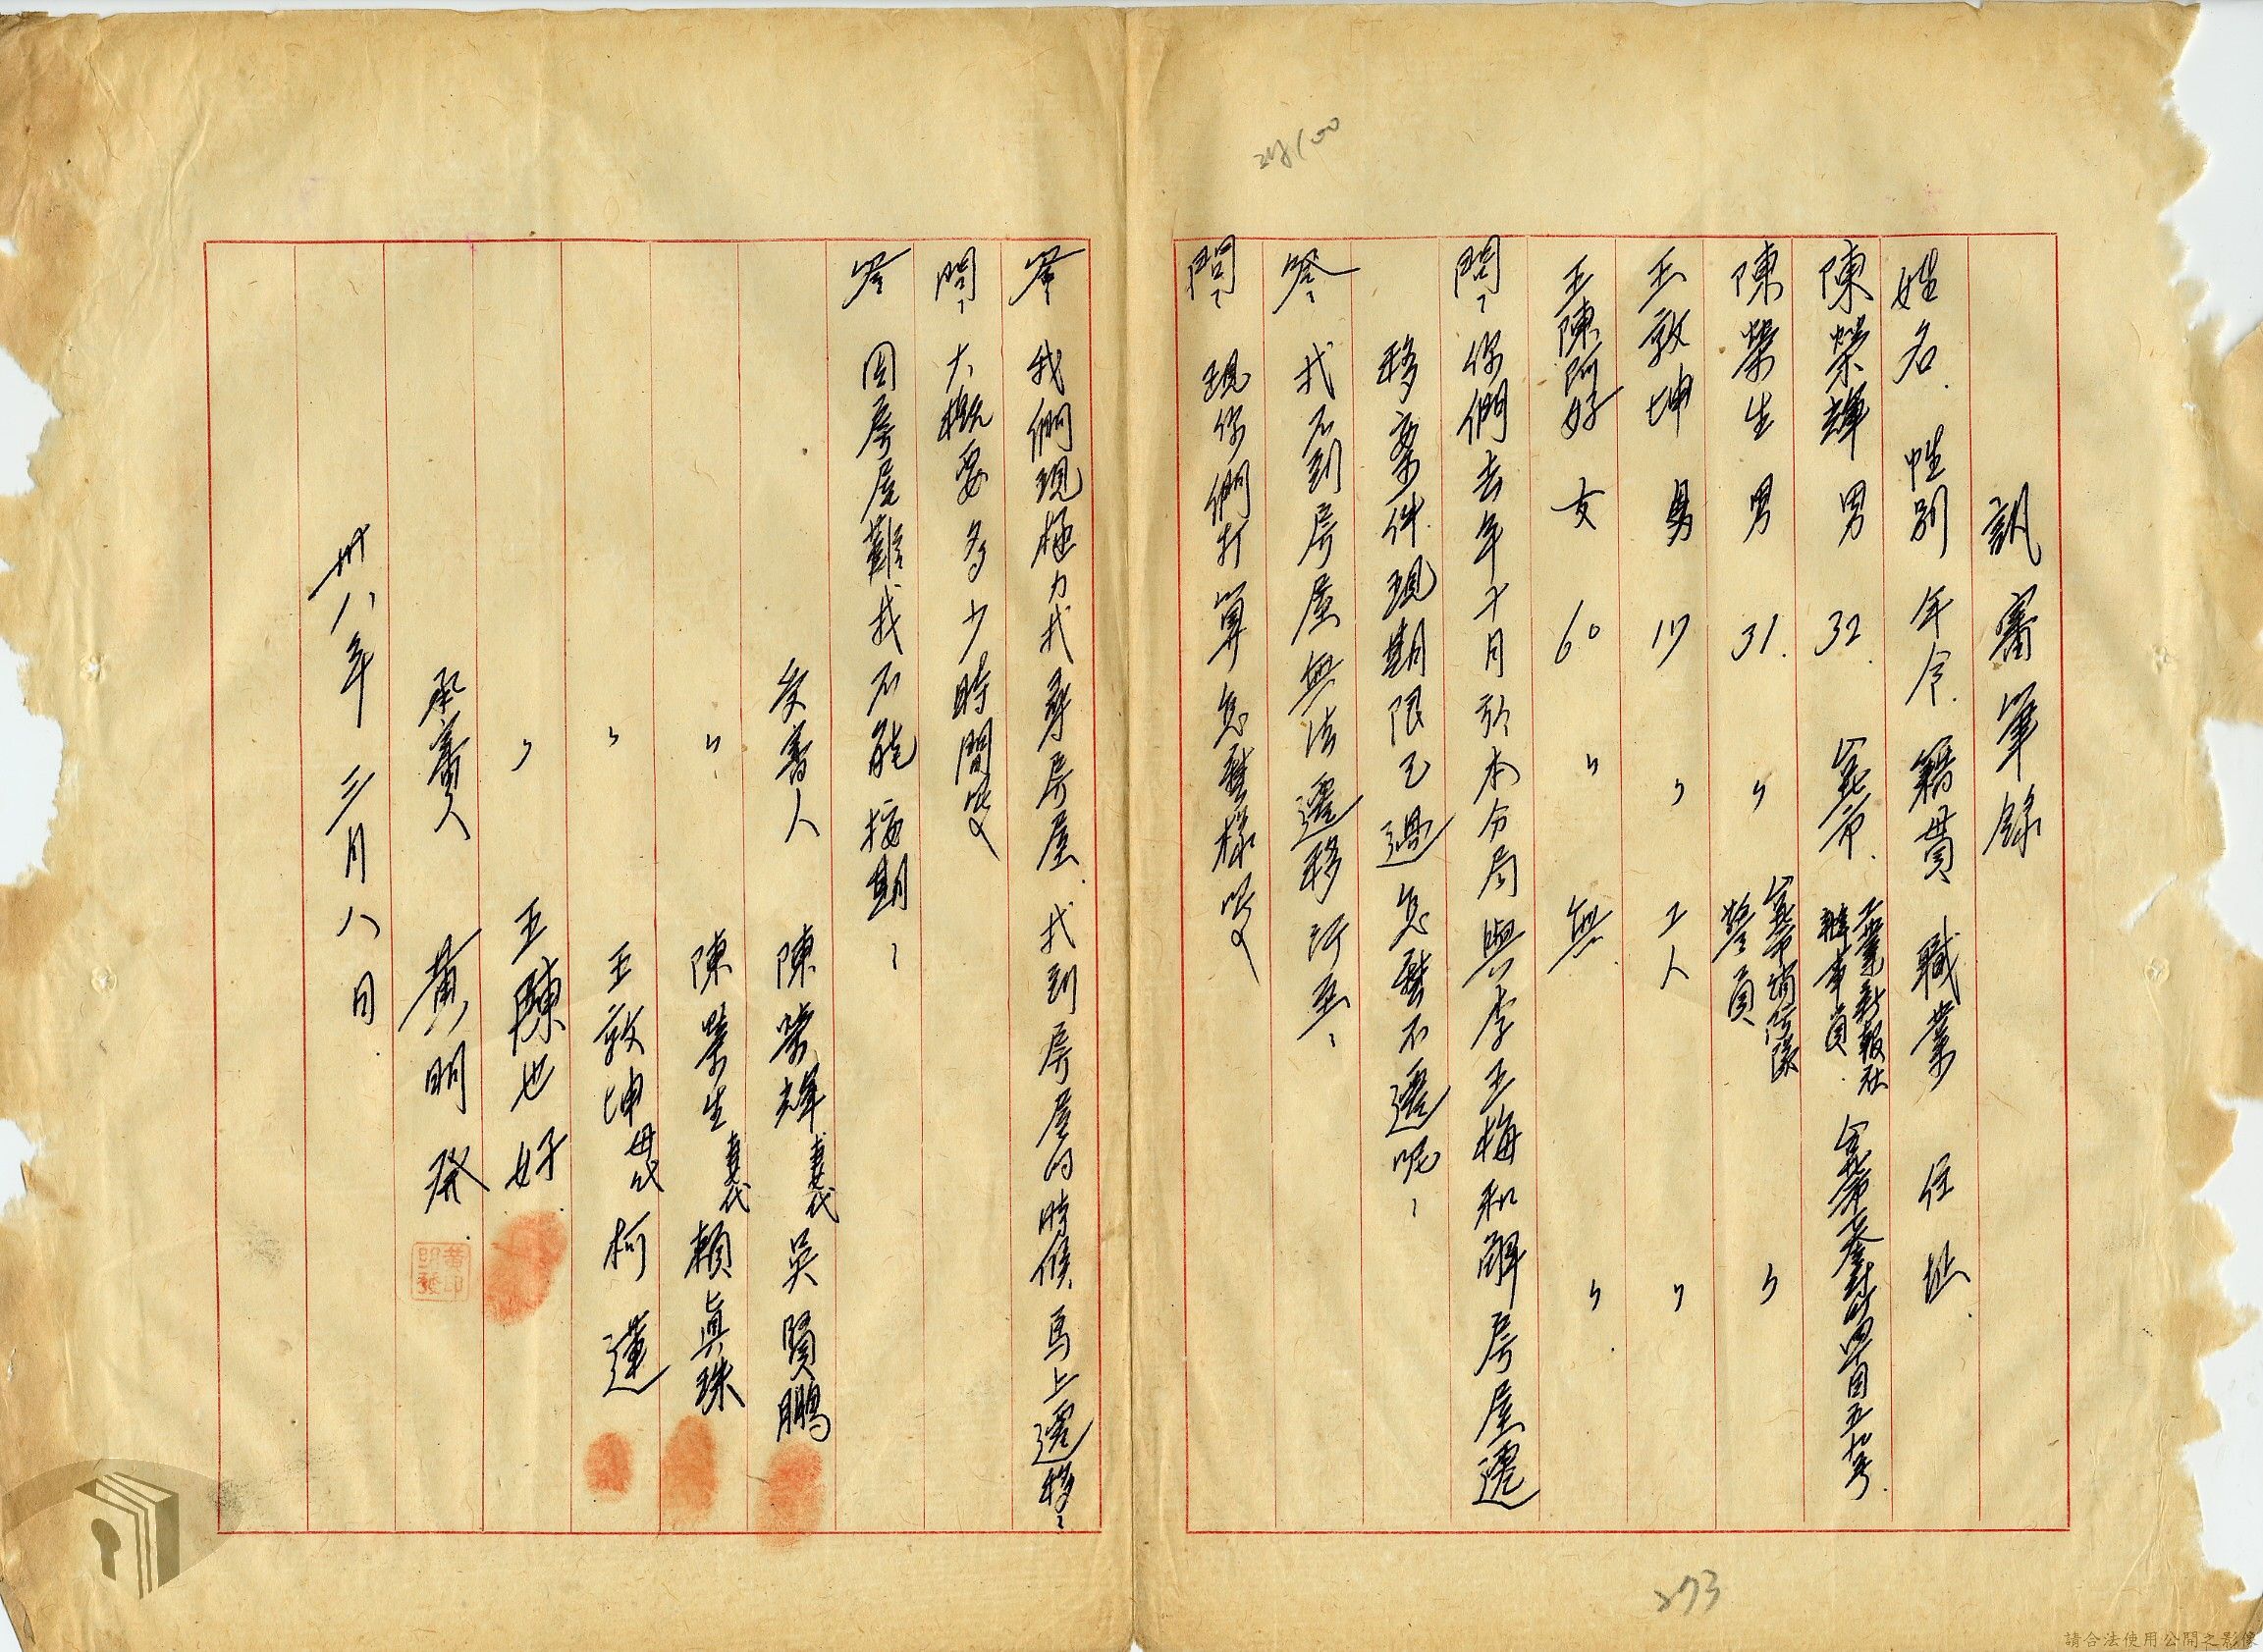 訊審筆錄
姓名 性別 年令 籍貫 職業 住址
陳榮輝 男 32 台北市 工業新報社辦事員
陳榮生 男 31 〃 台北市消防隊警員 〃
王敦坤 男 17 〃 工人 〃
王陳阿好 女 60 〃 無 〃
問、你們去年十月於本分局與李玉梅和解房屋遷
移案件現期限已過怎麼不遷呢、
答、找不到房屋無法遷移所至、
問、現你們打算怎麼樣呢
答 我們現極力找尋房屋找到房屋的時候馬上遷移、
問、大概要多少時間呢
答 因房屋難找不能按期、
受審人 陳榮輝 妻代 吳賢鵬
〃 陳榮生 妻代 賴真珠
〃 王敦坤 母代 柯蓮
〃 王陳也好
承審人 黃明發
黃印明發
卅八年三月八日
24/100
273
請合法使用公開之影像